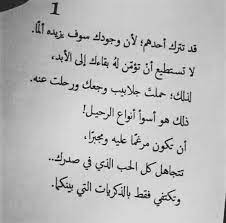 1
قد تترك أحدهم؛ لأن وجودك سوف يزيده ألمًا.
لا تستطيع أنْ تؤمّن لهُ بقاءك إلى الأبد،
لذلك؛ حملتَ جلابيب وجعك ورحلت عنه.
ذلك هو أسوأ أنواع الرحيل!
أن تكون مرغمًا عليه ومجبرًا،
تتجاهل كل الحب الذي في صدرك..
وتكتفي فقط بالذكريات التي بينكما.